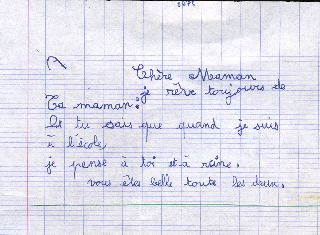 Chère Maman
je rêve toujours de
Ta maman.
Et tu sais que quand je suis
à l'école
je pense à toi et à
vous êtes belle toute les deux.